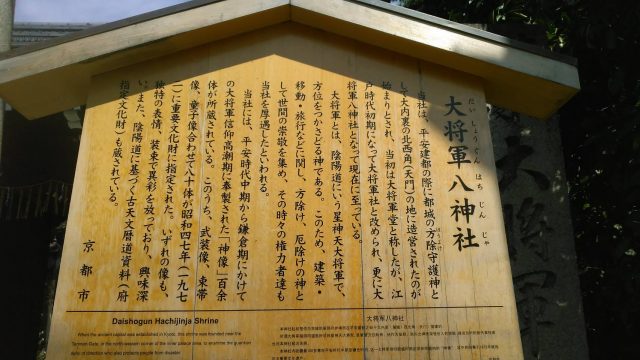 大将軍八神社
だいしょうぐんはちじんじゃ
当社は、平安建都の際に都城の方除守護神と
ほうよけ
して大内裏の北西角（天門）の地に造営されたのが
始まりとされ、当初は大将軍堂と称したが、江
戸時代初期になって大将軍社と改められ、更に大
将軍八神社となって現在に至っている。
大将軍とは、陰陽道にいう星神天大将軍で、
方位をつかさどる神である。このため、建築・
移動・旅行などに関し、方除け、厄除けの神と
して世間の崇敬を集め、その時々の権力者達も
当社を厚遇したといわれる。
当社には、平安時代中期から鎌倉期にかけて
の大将軍信仰高潮期に奉製された「神像」百余
体が所蔵されている。このうち、武装像、束帯
像、童子像合わせて八十体が昭和四七年（一九七
二）に重要文化財に指定された。いずれの像も、
独特の表情、装束で異彩を放っており、興味深
い。また、陰陽道に基づく古天文暦道資料（府
指定文化財）も蔵されている。
京都市
Daishogun Hachijinja Shrine
When the ancient capital was established in Kyoto, this shrine was founded near the
Tenmon Gate, in the north-western corner of the inner palace area, to enshrine the guardian
spirit of direction who also protects people from disaster.
大将軍八神社
大将軍